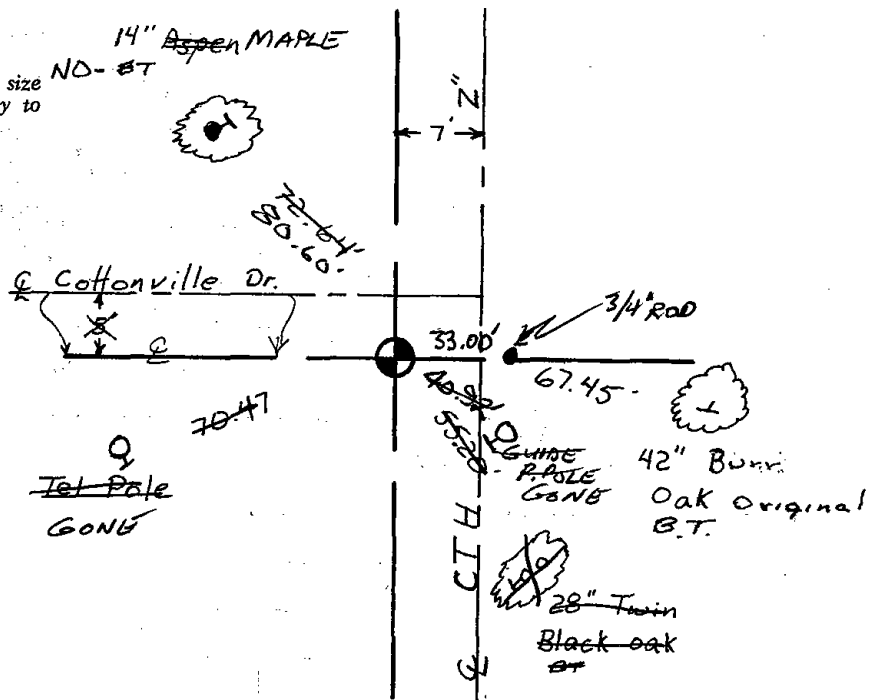 14" Aspen MAPLE
size NO- BT
y to
"Z"
7'
72.64'
80.60-
℄ Cottonville Dr.
5
℄
33.00'
3/4" ROD
67.45-
70.47
55.20
Tel Pole
GONE
GUIDE
P. POLE
GONE
42" Burr
Oak Original
B.T.
CTH
℄
28" Twin
Black oak
BT